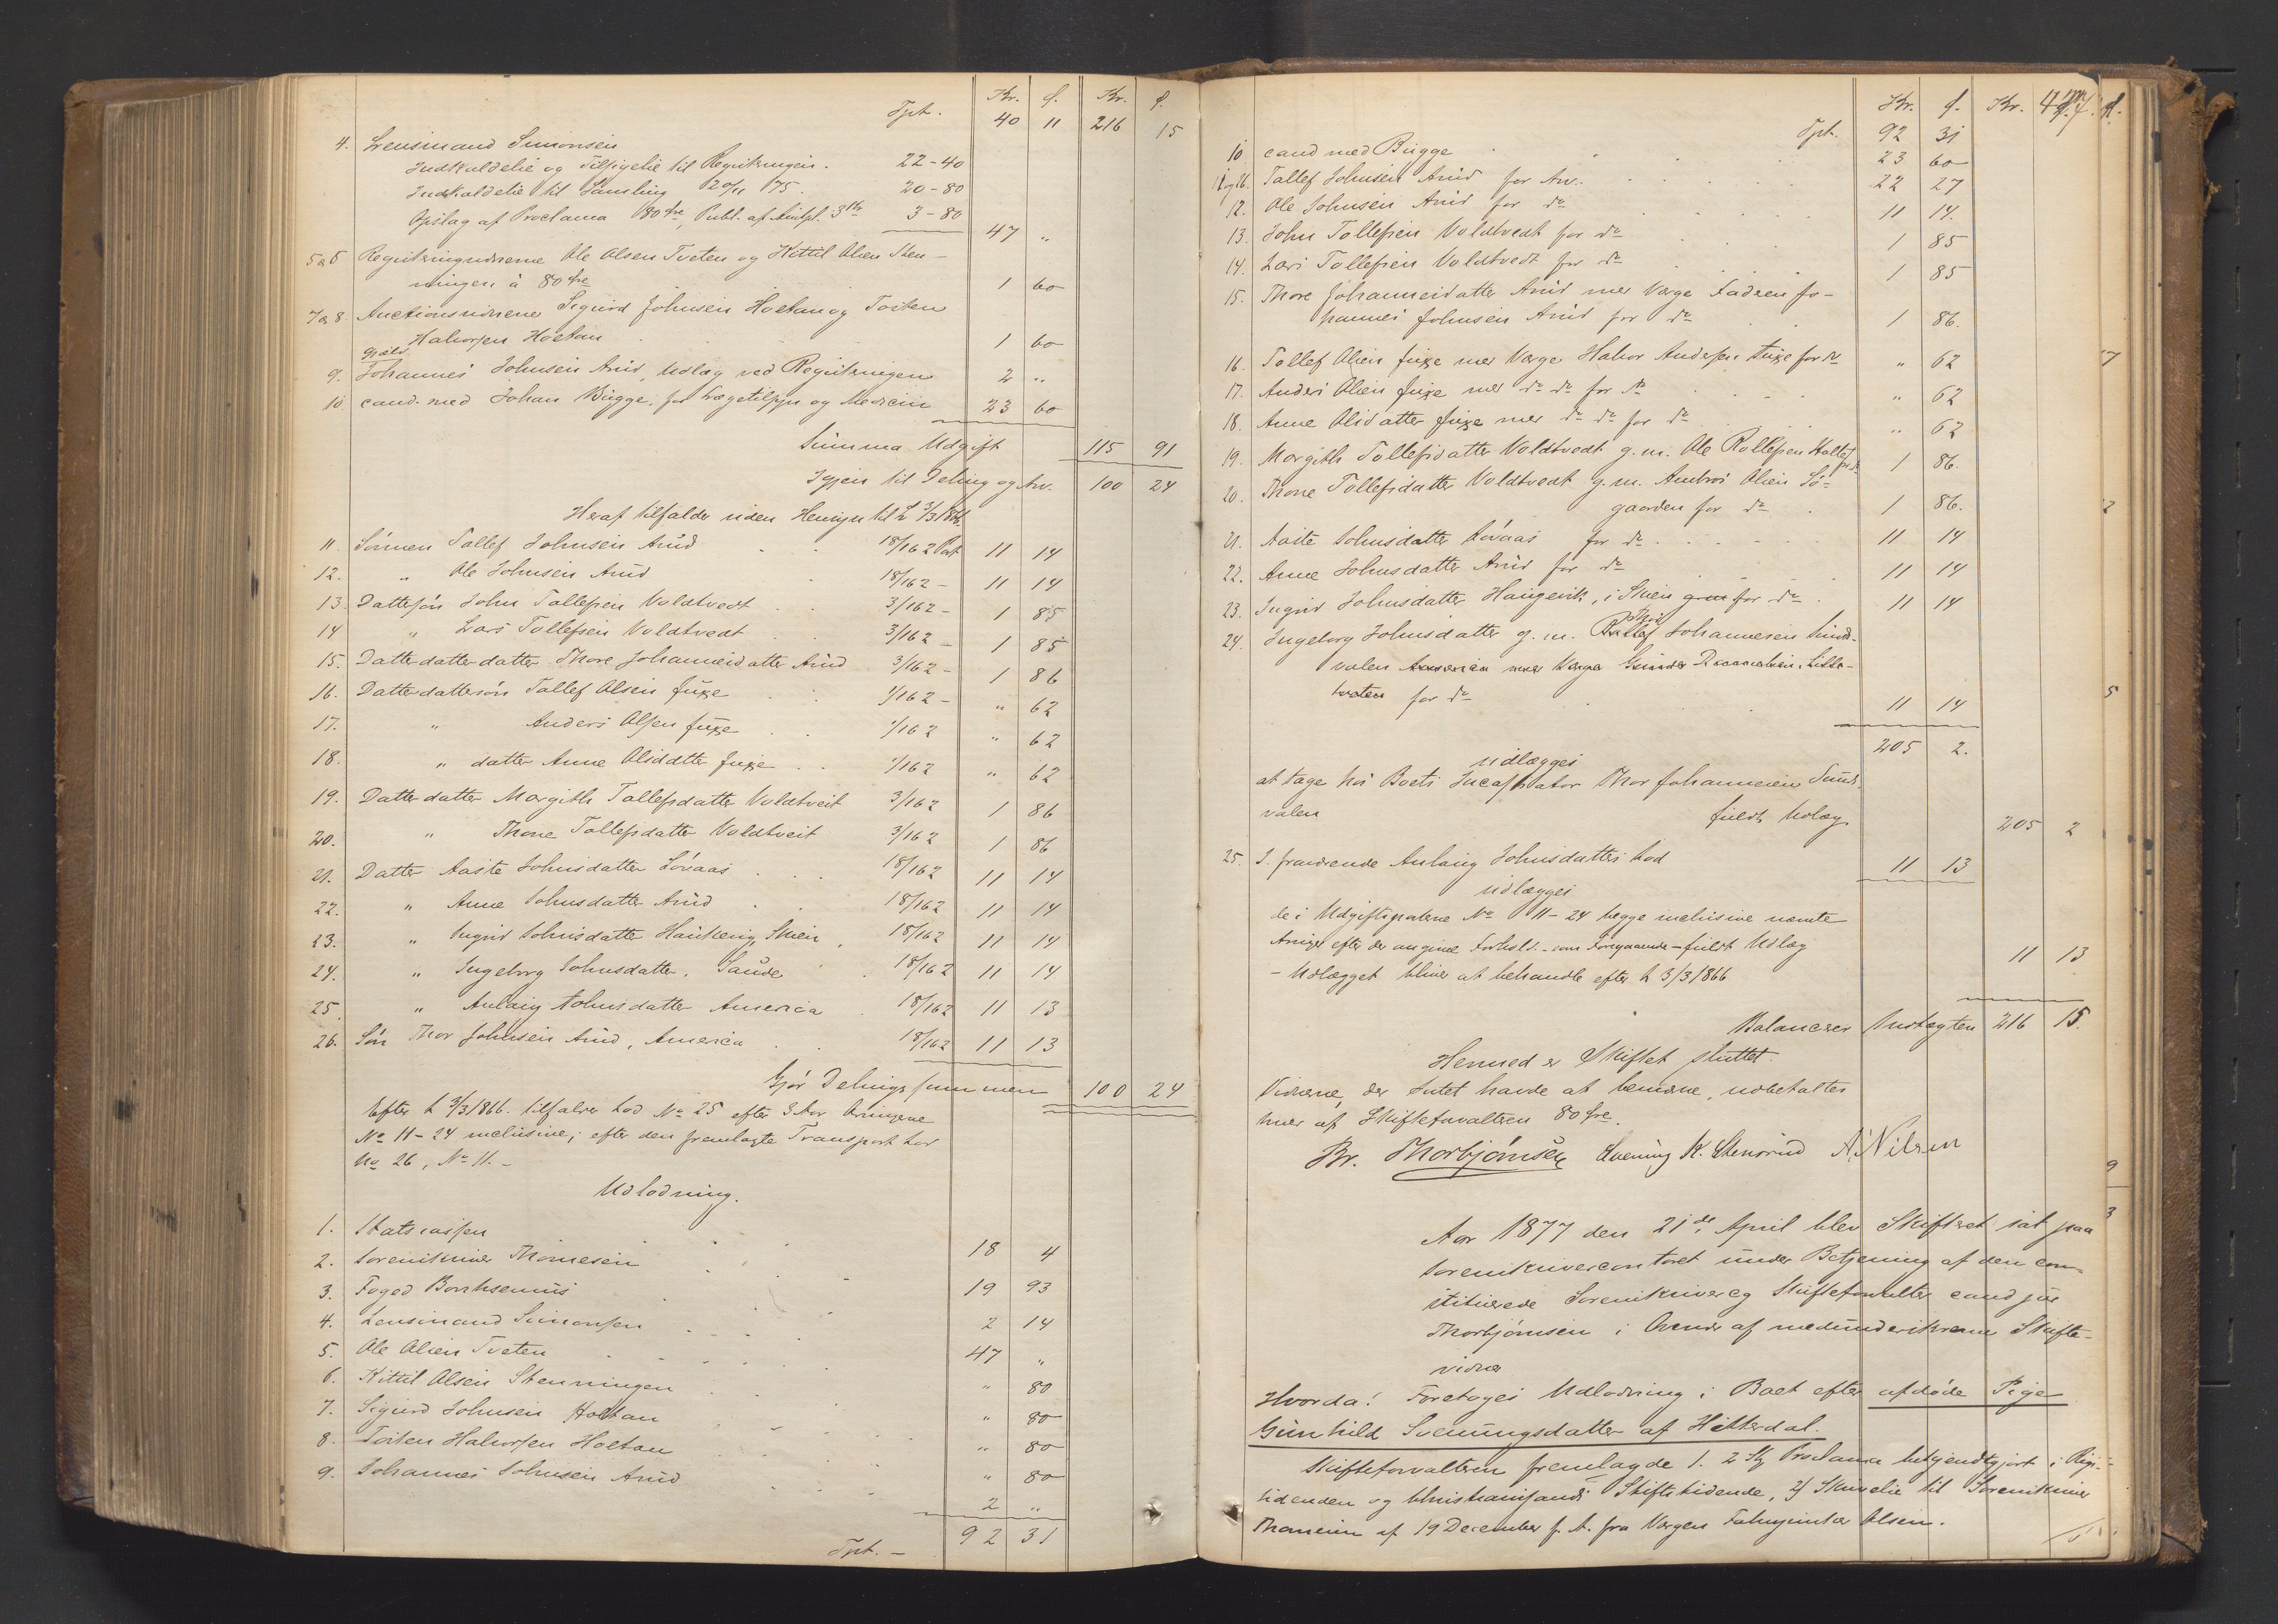 Kr. ø. Kr. ø.
Tpt. 40 11 216 15
4. Lensmand Simonsen
Indkaldelse og Tilsigelse til Registreringen. 22-40
Indkaldelse til Samling 20/11 75. 20-80
Opslag af Proclama 80 øre, Publ. af Auktpl. 3 Kr 3-80
47 "
5 & 6 Registreringsvidnerne Ole Olsen Tveten og Kittil Olsen Sten-
ningen à 80 øre 1 60
7 & 8. Auctionsvidnerne Sigurd Johnsen Hoetan og Tosten
Halvorsen Hoetan 1 60
Gjæld.
9. Johannes Johnsen Arud, Udlæg ved Registreringen 2 "
10 cand. med Johan Bugge, for Lægetilsyn og Medicin 23 60
Summa Udgift 115 91
Igjen til Deling og Arv. 100 24
Heraf tilfalder uden Hensyn til L 3/3 1866.
11. Sønnen Tollef Johnsen Arud 18/162 Part 11 14
12. " Ole Johnsen Arud 18/162 - 11 14
13. Dattersøn John Tollefsen Voldtvedt 3/162 - 1 85
14 " Lars Tollefsen Voldtvedt 3/162 - 1 85
15. Datterdatterdatter Thore Johannesdatter Arud 3/162 - 1 86
16. Datterdattersøn Tollef Olsen Juxe 1/162 - " 62
17. " Anders Olsen Juxe 1/162 " 62
18. " datter Anne Olsdatter Juxe 1/162 " 62
19. Datterdatter Margith Tollefsdatter Voldtveit 3/162 1 86
20. " Thone Tollefsdatter Voldtveit 3/162 1 86
21. Datter Aaste Johnsdatter Løvaas 18/162 11 14
22. " Anne Johnsdatter Arud 18/162 11 14
23. " Ingrid Johnsdatter Haukenig, Skien 18/162 11 14
24. " Ingeborg Johnsdatter. Saude 18/162 11 14.
25. " Anlaug Johnsdatter America 18/162 11 13
26. Søn Thor Johnsen Arud, America 18/162 11 13
Gjør Delingssummen 100 24
Efter L 3/3 1866. tilfalder Lod No 25 efter 3 Aar Arvingerne
No 11-24 inclusive; efter den fremlagte Transport Lod
No 26, No 11.-
Udlodning.
1. Statscassen 18 4
2. Sorenskriver Thomesen 19 93
3. Foged Borchsenius 2 14
4. Lensmand Simonsen 47 "
5. Ole Olsen Tveten " 80
6. Kittil Olsen Stenningen " 80
7. Sigurd Johnsen Hoetan " 80
8. Tosten Halvorsen Hoetan " 80
9. Johannes Johnsen Arud 2 "
Tpt. - 92 31
Kr. ø. Kr. 427. ø.
Tpt. 92 31
10 cand med Bugge 23 60
11 og 26. Tollef Johnsen Arud for Arv. 22 27
12. Ole Johnsen Arud for do 11 14.
13. John Tollefsen Voldtvedt for do 1 85
14. Lars Tollefsen Voldtvedt for do 1 85
15. Thore Johannesdatter Arud med Værge Faderen Jo-
hannes Johnsen Arud for do 1 86.
16. Tollef Olsen Juxe med Værge Halvor Andersen Juxe for do " 62
17. Anders Olsen Juxe med do do for do " 62
18. Anne Olsdatter Juxe med do do for do " 62
19. Margith Tollefsdatter Voldtvedt g. m. Ole Rollefsen for do 1 86.
20. Thone Tollefsdatter Voldtvedt g. m. Ambros Olsen Sø-
gaarden for do 1 86.
21. Aaste Johnsdatter Løvaas for do 11 14
22. Anne Johnsdatter Arud for do 11 14
23. Ingrid Johnsdatter Haugenik, i Skien for do 11 14
24. Ingeborg Johnsdatter g. m. Johannesen Sund-
valen America med Værge
for do 11 14
205 2.
udlægges
at tage hos Boets Incassator Thor Johannesen Sund-
valen fuldt Udlæg 205 2
25. I. fraværende Anlaug Johnsdatters Lod 11 13
udlægges
de i Udgiftsposterne No 11-24 begge inclusive nævnte
Arvinger efter der angivne Forhold - som Foregaaende - fuldt Udlæg 11 13
- Udlægget bliver at behandle efter L 3/3 1866
Balancerer Indtægten 216 15.
Hermed er Skiftet sluttet.
Vidnerne, der Intet havde at bemærke, udbetaltes
hver af Skifteforvalteren 80 øre.
Br. Thorbjørnsen Svening K. Stensrud A. Nilsen
Aar 1877 den 21de April blev Skifteret sat paa
Sorenskrivercontoret under Betjening af den con-
stituerede Sorenskriver og Skifteforvalter cand jur
Thorbjørnsen i Overvær af medunderskrevne Skifte-
vidner
Hvorda: Foretoges Udlodning i Boet efter afdøde Pige
Gunhild Sveinungsdatter af Hitterdal.
Skifteforvalteren fremlagde 1. 2 St Proclama bekjendtgjort i Rigs-
tidenden og Christianssands Stiftstidende, 2) Skrivelse til Sorenskriver
Thomesen af 19 December f. A. fra Værgen Olsen.